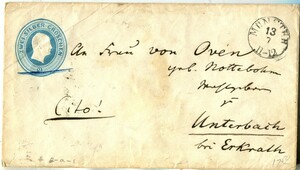 ZWEI SILBERGROSCHEN
MÜNSTER
13
7
11-12
An Frau von Oven
geb. Nottebohm
Cito!
Unterbach
bei Erkrath